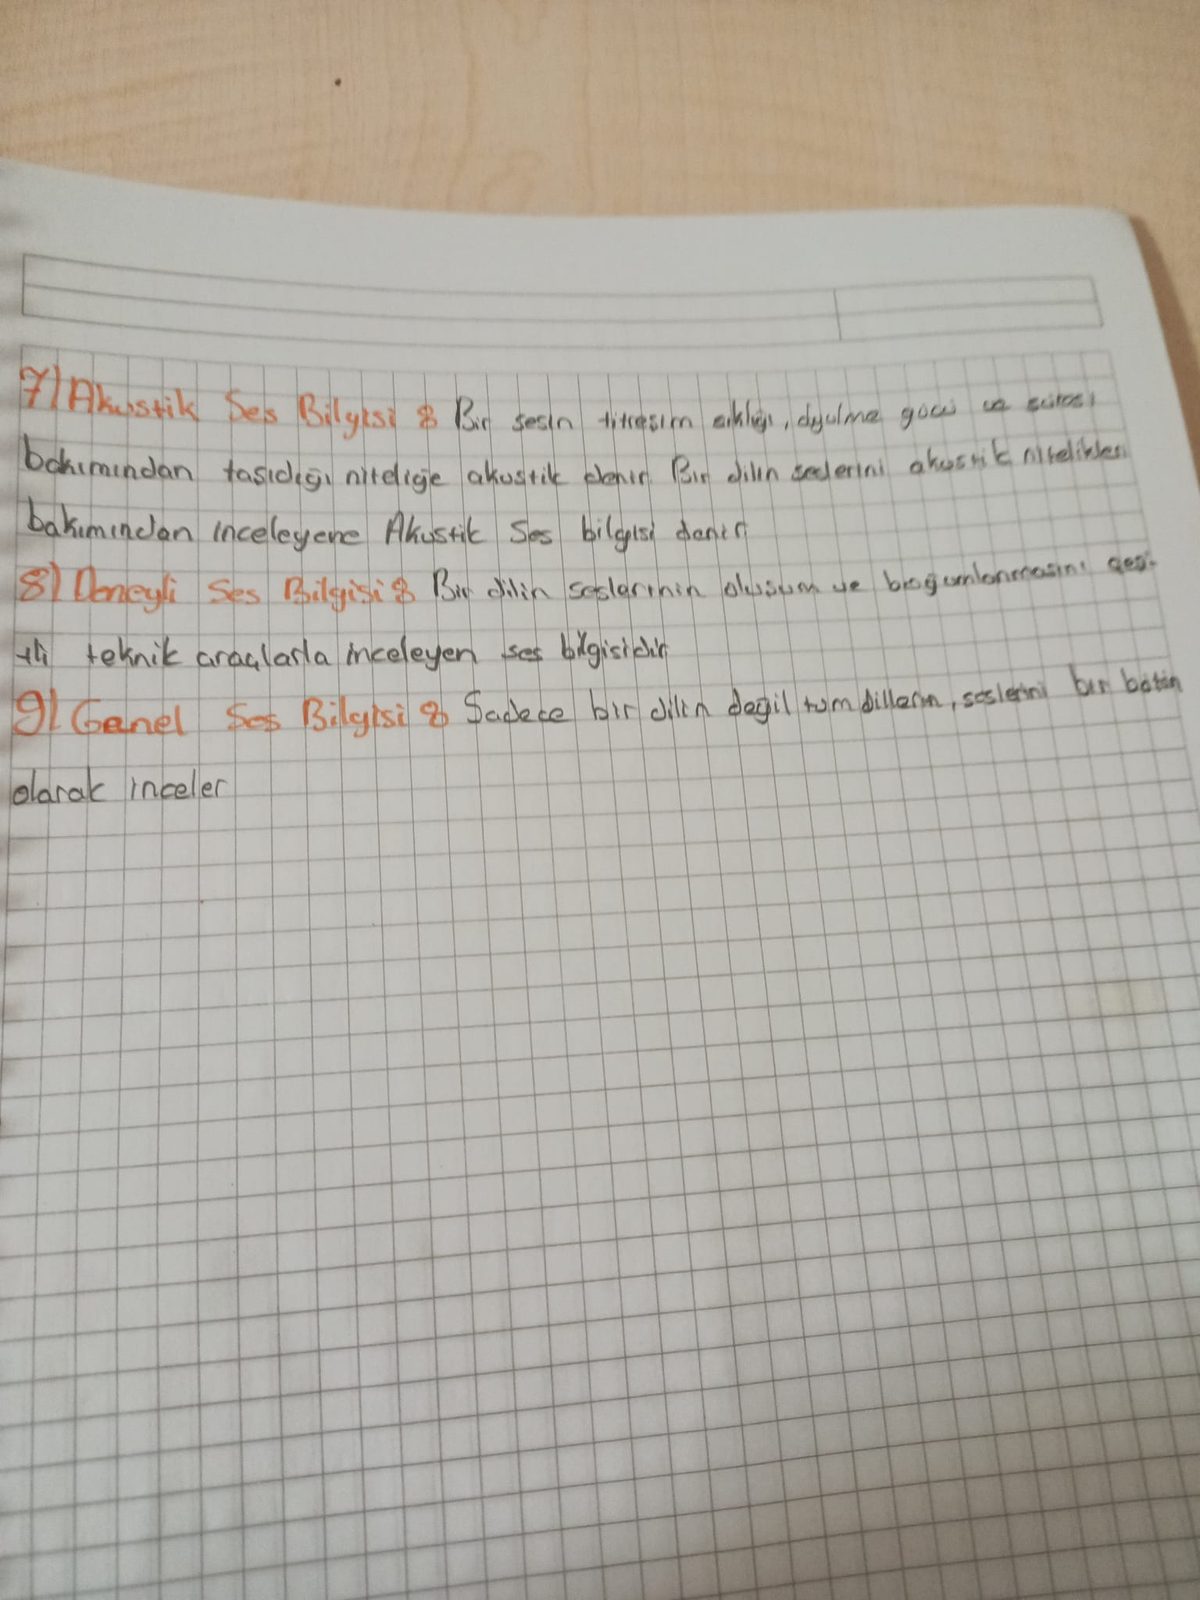 7) Akustik Ses Bilgisi : Bir sesin titreşim sıklığı, duyulma gücü ve süresi
bakımından taşıdığı niteliğe akustik denir. Bir dilin seslerini akustik nitelikleri
bakımından inceleyene Akustik Ses bilgisi denir
8) Deneyli Ses Bilgisi : Bir dilin seslerinin oluşum ve boğumlanmasını çeşi-
tli teknik araçlarla inceleyen ses bilgisidir
9) Genel Ses Bilgisi : Sadece bir dilin değil tüm dillerin, seslerini bir bütün
olarak inceler